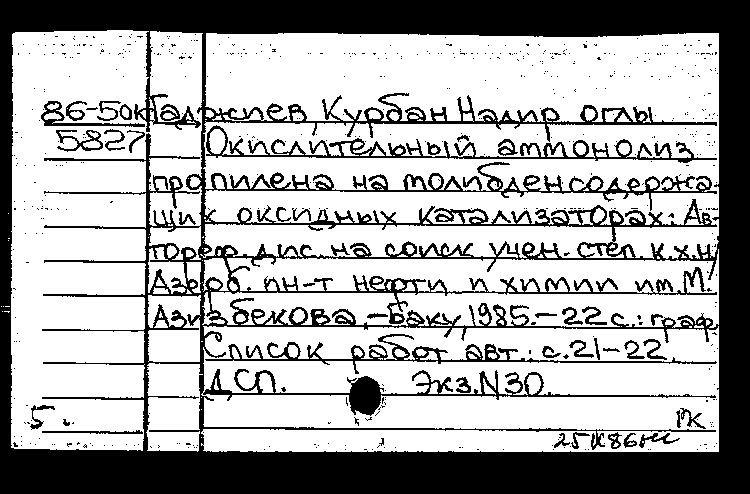 86-50к Гаджиев, Курбан Надир оглы
5827 Окислительный аммонолиз
пропилена на молибденсодержа-
щих оксидных катализаторах: Ав-
тореф. дис. на соиск. учен. степ. к.х.н/
Азерб. ин-т нефти и химии им. М.
Азизбекова. -Баку, 1985.-22 с.: граф.
Список работ авт.: с.21-22.
ДСП. Экз.N30
5. МК